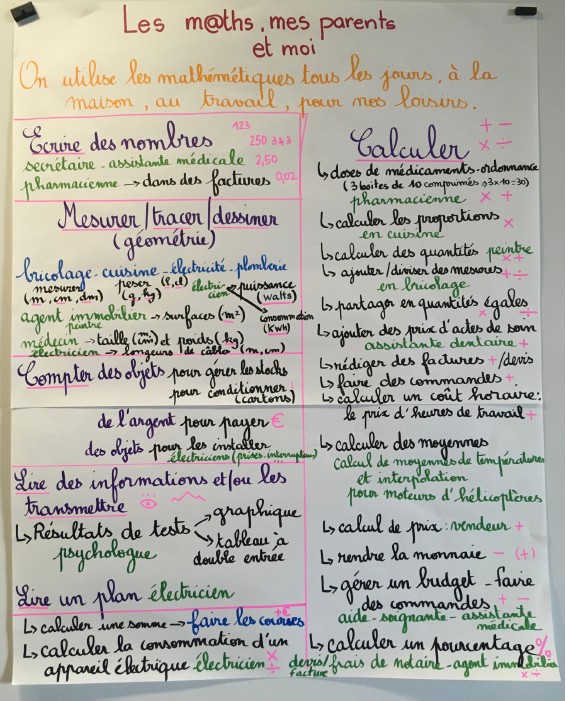 Les m@ths, mes parents
et moi
On utilise les mathémétiques tous les jours, à la
maison, au travail, pour nos loisirs.
Ecrire des nombres
123
250 343
secrétaire - assistante médicale 2,50
pharmacienne → dans des factures 0,02
Mesurer/tracer/dessiner
(géométrie)
bricolage - cuisine - électricité - plomberie
mesurer peser (l, cl) électricien → puissance
(m, cm, dm) (g, kg) (watts)
agent immobilier → surfaces (m²) consommation
(kWh)
peintre
médecin → taille (m, cm) et poids (kg)
électricien → longueurs de câble (m, cm)
Compter des objets pour gérer les stocks
pour conditionner
(cartons)
de l'argent pour payer €
des objets pour les installer
électriciens (prises, interrupteurs)
Lire des informations et/ou les
transmettre
↳ Résultats de tests → graphique
psychologue → tableau à
double entrée
Lire un plan électricien
↳ calculer une somme → faire les courses +€
↳ calculer la consommation d'un
appareil électrique électricien × ÷
Calculer + - × ÷
↳ doses de médicaments - ordonnance
(3 boîtes de 10 comprimés → 3×10=30)
pharmacienne × +
↳ calculer les proportions ×
en cuisine
↳ calculer des quantités peintre × +
↳ ajouter/diviser des mesures + ÷
en bricolage
↳ partager en quantités égales × ÷
↳ ajouter des prix d'actes de soin
assistante dentaire +
↳ rédiger des factures +/devis
↳ faire des commandes +
↳ calculer un coût horaire:
le prix d'heures de travail +
↳ calculer des moyennes
calcul de moyennes de températures
et interpolation
pour moteurs d'hélicoptères
↳ calcul de prix: vendeur +
↳ rendre la monnaie - (+)
↳ gérer un budget - faire
des commandes + -
aide-soignante - assistante
médicale
↳ calculer un pourcentage %
devis/frais de notaire - agent immobilier
facture × ÷